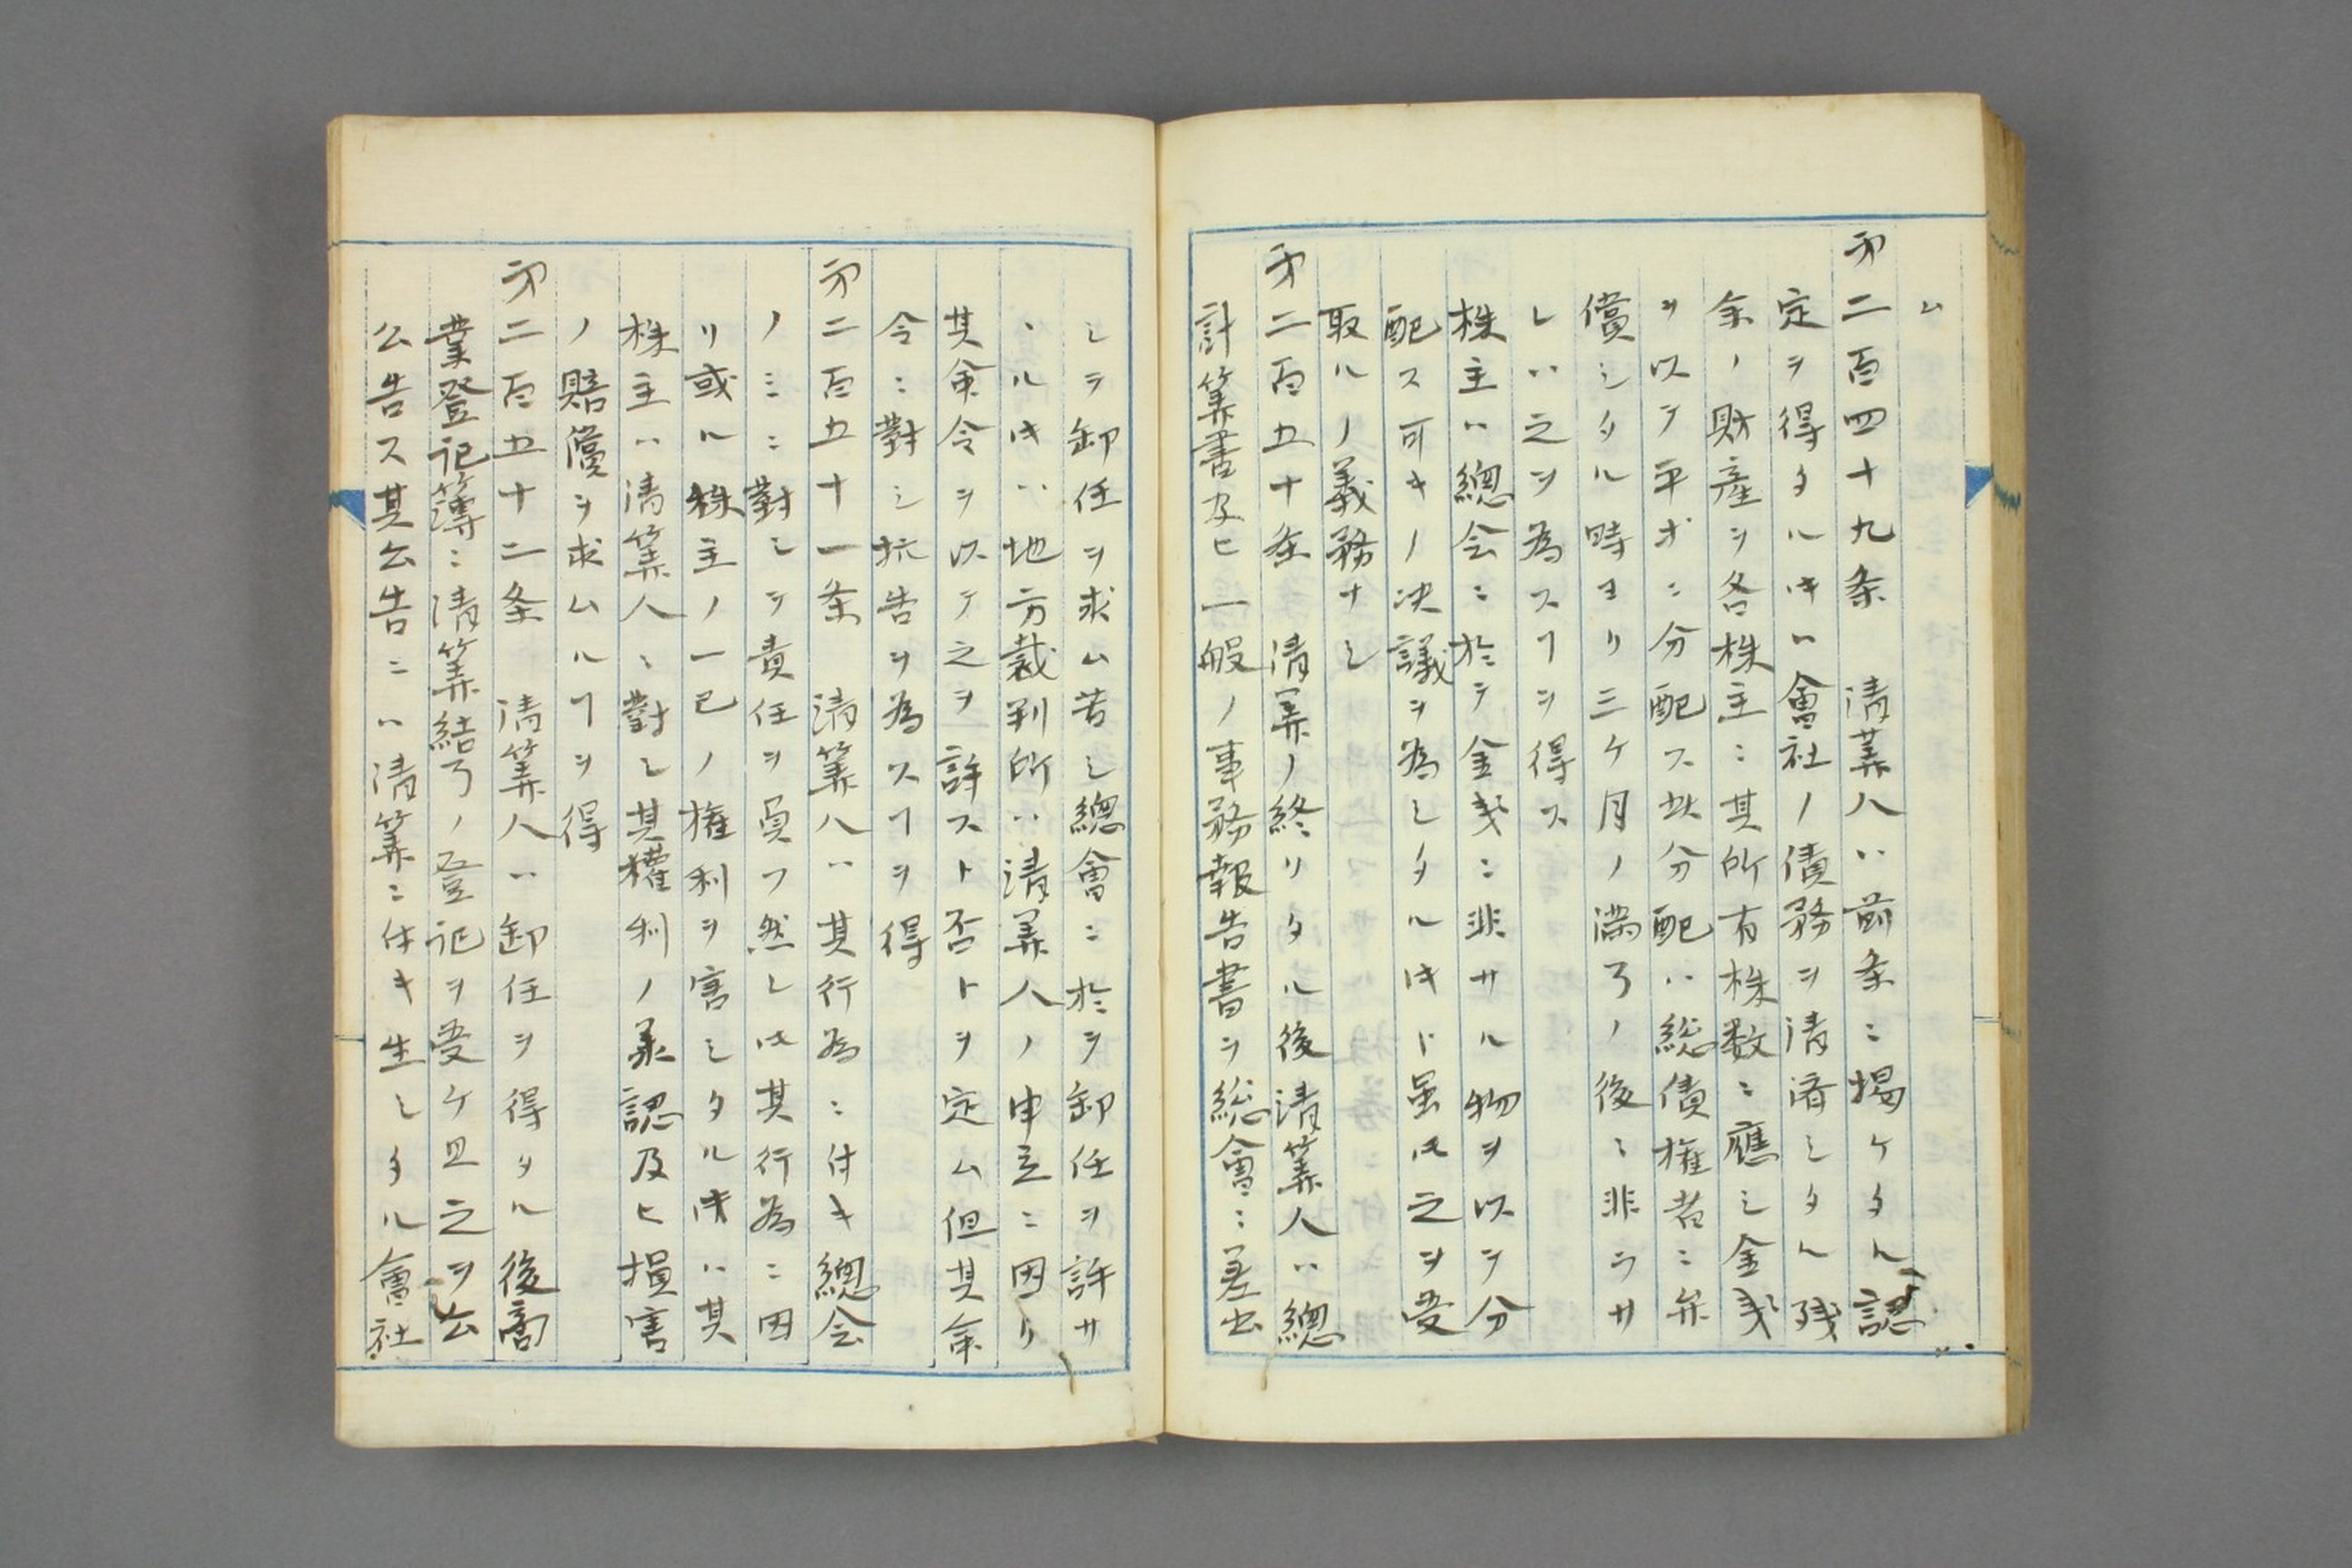 ム
第二百四十九条　清算人ハ前条ニ掲ケタル認
定ヲ得タル𪜈ハ會社ノ債務ヲ清済シタル残
余ノ財産ヲ各株主ニ其所有株数ニ應シ金銭
ヲ以テ平等ニ分配ス此分配ハ総債権者ニ弁
償シタル時ヨリ三ケ月ノ満了ノ後ニ非ラサ
レハ之ヲ為スヿヲ得ス
株主ハ總会ニ於テ金銭ニ非サル物ヲ以テ分
配ス可キノ决議ヲ為シタル𪜈ト虽𪜈之ヲ受
取ルノ義務ナシ
第二百五十条　清算ノ終リタル後清算人ハ總
計算書及ヒ一般ノ事務報告書ヲ総會ニ差出
シテ卸任ヲ求ム若シ總會ニ於テ卸任ヲ許サ
ヽル𪜈ハ地方裁判所ハ清算人ノ申立ニ因リ
其命令ヲ以テ之ヲ許スト否トヲ定ム但其命
令ニ對シ抗告ヲ為スヿヲ得
第二百五十一条　清算人ハ其行為ニ付キ總会
ノミニ對シテ責任ヲ負フ然レ𪜈其行為ニ因
リ或ル株主ノ一己ノ権利ヲ害シタル𪜈ハ其
株主ハ清算人ニ對シ其權利ノ承認及ヒ損害
ノ賠償ヲ求ムルヿヲ得
第二百五十二条　清算人ハ卸任ヲ得タル後商
業登記簿ニ清算結了ノ登记ヲ受ケ且之ヲ公
公告ス其公告ニハ清算ニ付キ生シタル會社